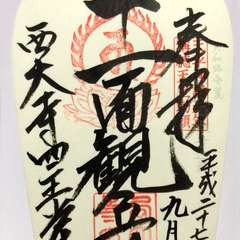 奉拝
平成二十七
九月
十一面観音
西大寺四王堂